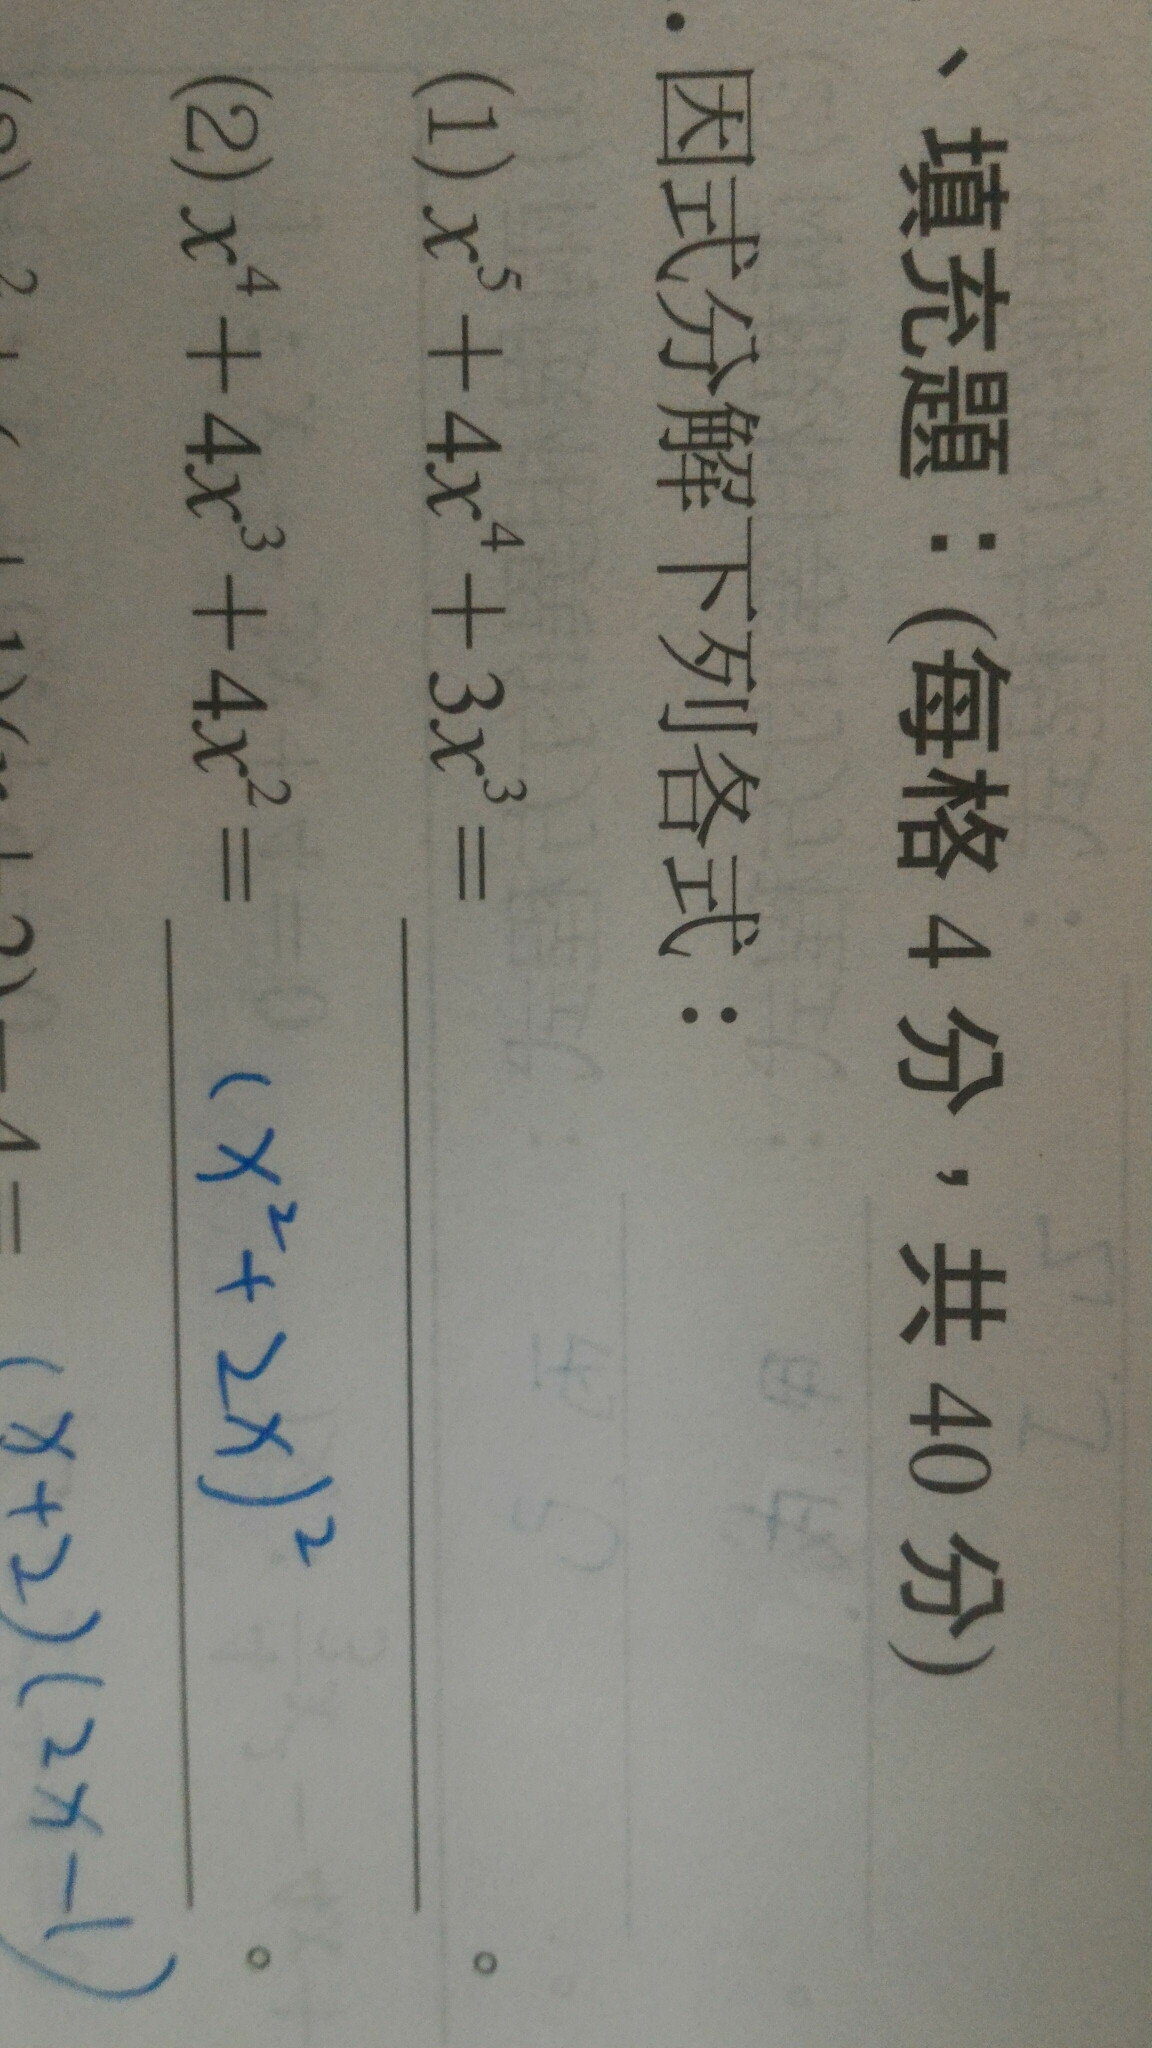 、填充題：(每格 4 分，共 40 分)
. 因式分解下列各式：
(1) x⁵ + 4x⁴ + 3x³ = ________。
(2) x⁴ + 4x³ + 4x² = (x² + 2x)²。
(x+2)(2x-1)